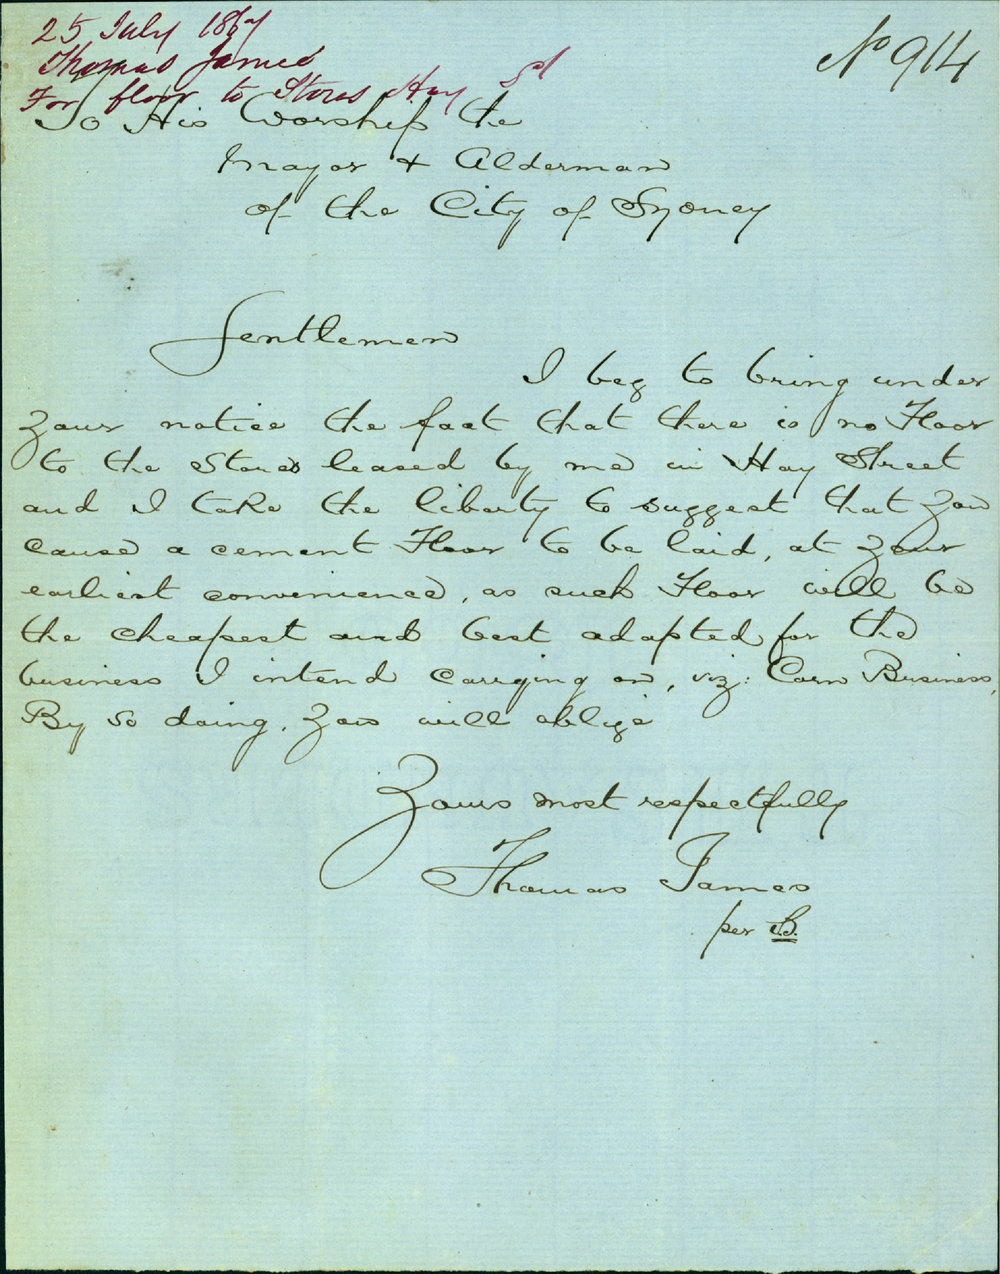 25 July 1867
Thomas James
For floor to Stores Hay St
No 914
To His Worship the
Mayor & Alderman
of the City of Sydney
Gentlemen
I beg to bring under
your notice the fact that there is no Floor
to the Stores leased by me in Hay Street
and I take the liberty to suggest that you
cause a cement Floor to be laid, at your
earliest convenience, as such Floor will be
the cheapest and best adapted for the
business I intend carrying on, viz: Corn Business,
By so doing, you will oblige
Yours most respectfully
Thomas James
per B.